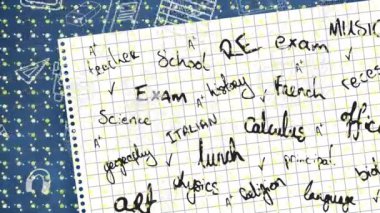 MUSIC
teacher School RE exam
Exam history French recess
Science ITALIAN calculus office
geography lunch principal
art physics religion language